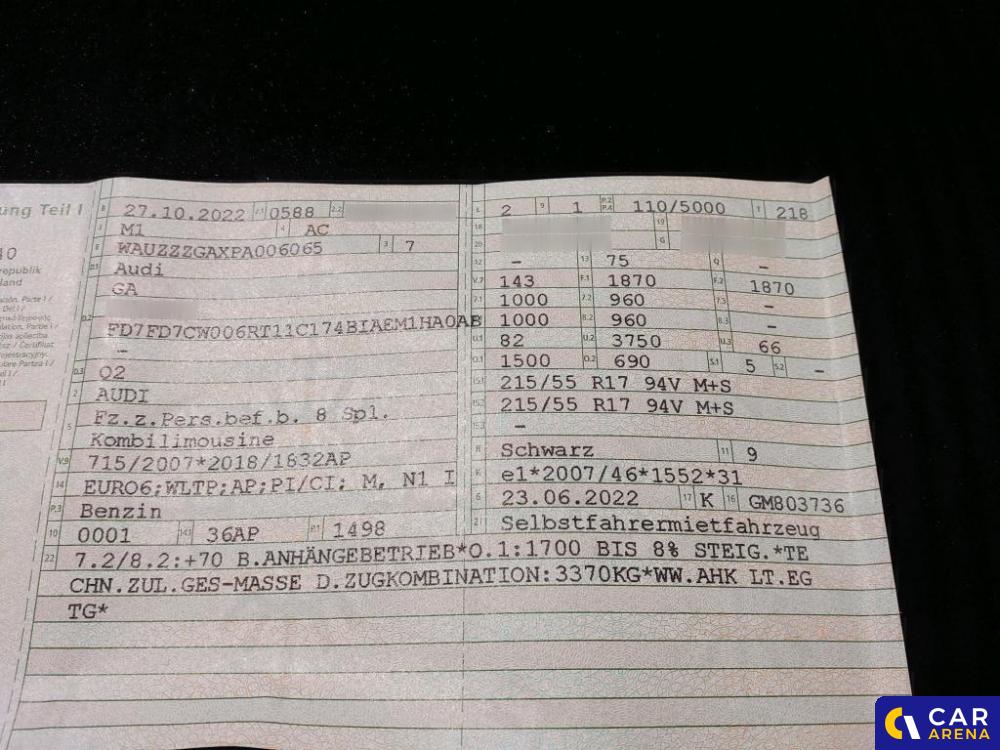 ung Teil I
B 27.10.2022 2.1 0588 2.2
J M1 4 AC
E WAUZZZGAXPA006065 3 7
D.1 Audi
GA
D.2
FD7FD7CW006RT11C174BIAEM1HA0AB
–
D.3 Q2
2 AUDI
5 Fz.z.Pers.bef.b. 8 Spl.
Kombilimousine
V.9 715/2007*2018/1832AP
14 EURO6;WLTP;AP;PI/CI; M, N1 I
P.3 Benzin
10 0001 14.1 36AP P.1 1498
22 7.2/8.2:+70 B.ANHÄNGEBETRIEB*O.1:1700 BIS 8% STEIG.*TE
CHN.ZUL.GES-MASSE D.ZUGKOMBINATION:3370KG*WW.AHK LT.EG
TG*
L 2 9 1 P.2 P.4 110/5000 T 218
18 19
20 G
12 – 13 75 Q –
V.7 143 F.1 1870 F.2 1870
7.1 1000 7.2 960 7.3 –
8.1 1000 8.2 960 8.3 –
U.1 82 U.2 3750 U.3 66
O.1 1500 O.2 690 S.1 5 S.2 –
15.1 215/55 R17 94V M+S
15.2 215/55 R17 94V M+S
15.3 –
R Schwarz 11 9
K e1*2007/46*1552*31
6 23.06.2022 17 K 16 GM803736
21 Selbstfahrermietfahrzeug
CAR
ARENA